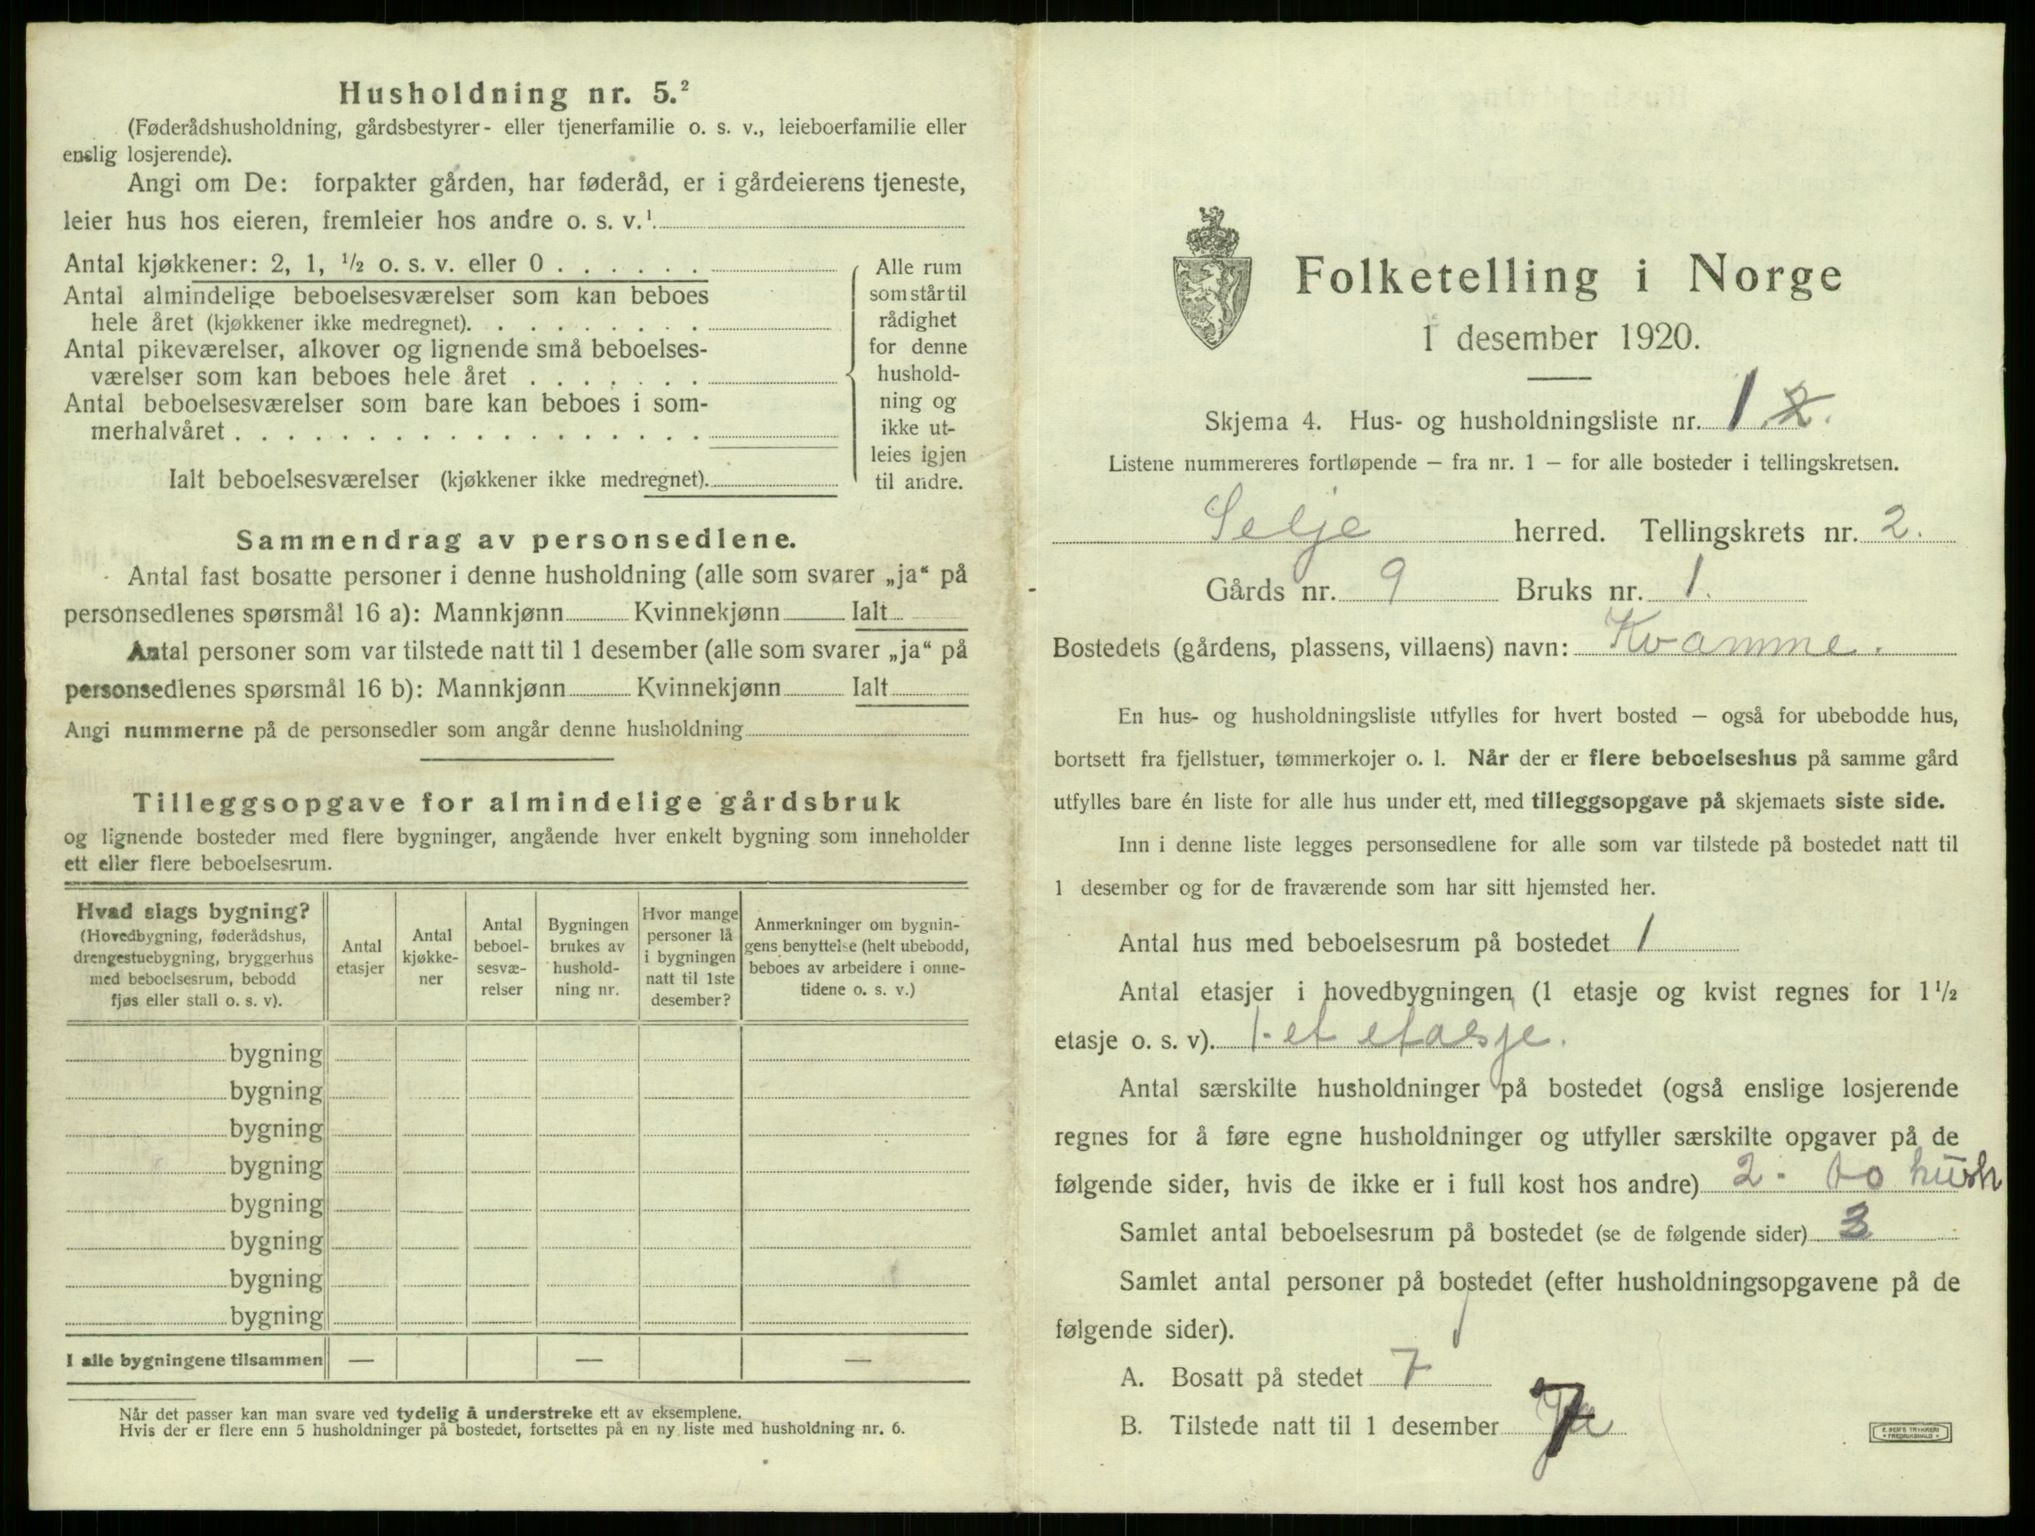 Husholdning nr. 5.²
(Føderådshusholdning, gårdsbestyrer- eller tjenerfamilie o. s. v., leieboerfamilie eller
enslig losjerende).
Angi om De: forpakter gården, har føderåd, er i gårdeierens tjeneste,
leier hus hos eieren, fremleier hos andre o. s. v.¹
Antal kjøkkener: 2, 1, ½ o. s. v. eller 0 . . . . . .
Antal almindelige beboelsesværelser som kan beboes
hele året (kjøkkener ikke medregnet). . . . . . . . .
Antal pikeværelser, alkover og lignende små beboelses-
værelser som kan beboes hele året . . . . . . .
Antal beboelsesværelser som bare kan beboes i som-
merhalvåret . . . . . . . . . . . . . . . . . .
Ialt beboelsesværelser (kjøkkener ikke medregnet).
Alle rum
som står til
rådighet
for denne
hushold-
ning og
ikke ut-
leies igjen
til andre.
Sammendrag av personsedlene.
Antal fast bosatte personer i denne husholdning (alle som svarer „ja“ på
personsedlenes spørsmål 16 a): Mannkjønn Kvinnekjønn Ialt
Antal personer som var tilstede natt til 1 desember (alle som svarer „ja“ på
personsedlenes spørsmål 16 b): Mannkjønn Kvinnekjønn Ialt
Angi nummerne på de personsedler som angår denne husholdning
Tilleggsopgave for almindelige gårdsbruk
og lignende bosteder med flere bygninger, angående hver enkelt bygning som inneholder
ett eller flere beboelsesrum.
Hvad slags bygning?
(Hovedbygning, føderådshus,
drengestuebygning, bryggerhus
med beboelsesrum, bebodd
fjøs eller stall o. s. v).
Antal
etasjer
Antal
kjøkke-
ner
Antal
beboel-
sesvæ-
relser
Bygningen
brukes av
hushold-
ning nr.
Hvor mange
personer lå
i bygningen
natt til 1ste
desember?
Anmerkninger om bygnin-
gens benyttelse (helt ubebodd,
beboes av arbeidere i onne-
tidene o. s. v.)
bygning
bygning
bygning
bygning
bygning
bygning
bygning
bygning
I alle bygningene tilsammen — — —
Når det passer kan man svare ved tydelig å understreke ett av eksemplene.
Hvis der er flere enn 5 husholdninger på bostedet, fortsettes på en ny liste med husholdning nr. 6.
Folketelling i Norge
1 desember 1920.
Skjema 4. Hus- og husholdningsliste nr. 1 2.
Listene nummereres fortløpende – fra nr. 1 – for alle bosteder i tellingskretsen.
Selje herred. Tellingskrets nr. 2.
Gårds nr. 9 Bruks nr. 1.
Bostedets (gårdens, plassens, villaens) navn: Kvamme.
En hus- og husholdningsliste utfylles for hvert bosted – også for ubebodde hus,
bortsett fra fjellstuer, tømmerkojer o. l. Når der er flere beboelseshus på samme gård
utfylles bare én liste for alle hus under ett, med tilleggsopgave på skjemaets siste side.
Inn i denne liste legges personsedlene for alle som var tilstede på bostedet natt til
1 desember og for de fraværende som har sitt hjemsted her.
Antal hus med beboelsesrum på bostedet 1
Antal etasjer i hovedbygningen (1 etasje og kvist regnes for 1½
etasje o. s. v). 1. et etasje.
Antal særskilte husholdninger på bostedet (også enslige losjerende
regnes for å føre egne husholdninger og utfyller særskilte opgaver på de
følgende sider, hvis de ikke er i full kost hos andre) 2. to hush
Samlet antal beboelsesrum på bostedet (se de følgende sider) 3
Samlet antal personer på bostedet (efter husholdningsopgavene på de
følgende sider).
A. Bosatt på stedet 7
B. Tilstede natt til 1 desember 7
E. SEM'S TRYKKERI
FREDRIKSHALD